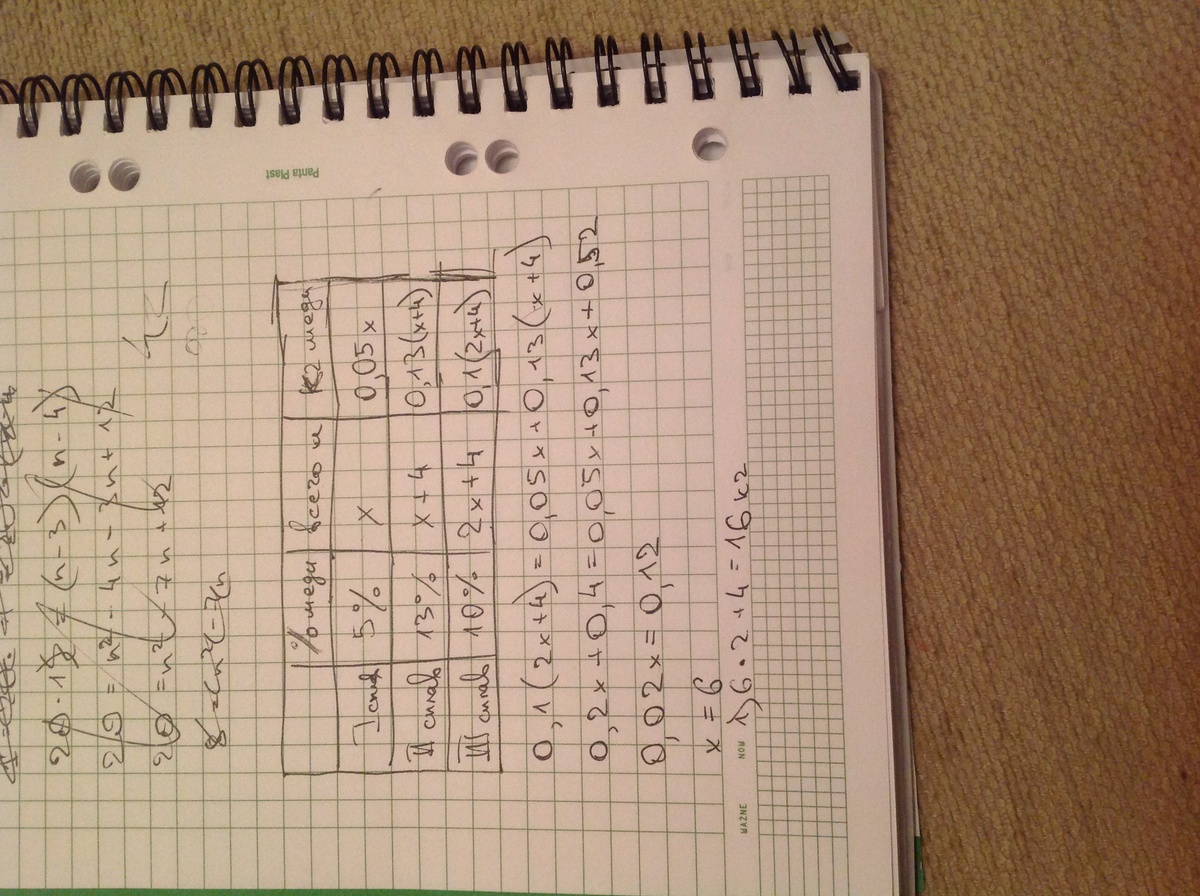 20 · 1 = (n-3)(n-4)
20 = n² - 4n - 3n + 12
20 = n² - 7n + 12
8 = n² - 7n
Panta Plast
% меди всего м кг меди
I спл 5% x 0,05x
II сплав 13% x+4 0,13(x+4)
III сплав 10% 2x+4 0,1(2x+4)
0,1(2x+4) = 0,05x+0,13(x+4)
0,2x+0,4 = 0,05x+0,13x+0,52
0,02x = 0,12
x = 6
1) 6 · 2 + 4 = 16 кг
WAŻNE NOW